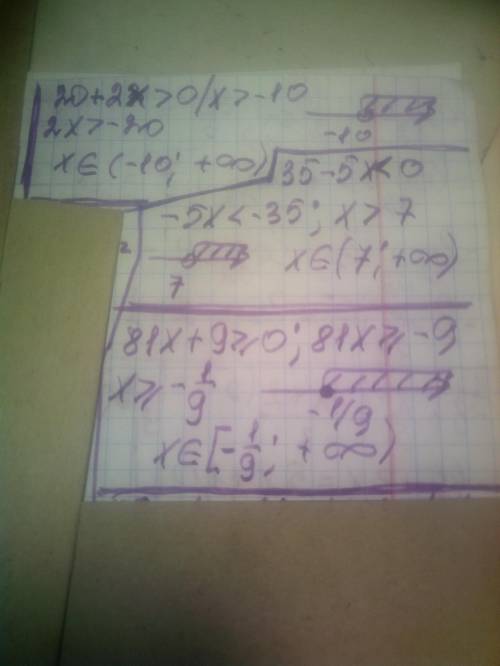 20+2x>0/x>-10
2x>-20
-10
x∈(-10; +∞)
35-5x<0
-5x<-35; x>7
7
x∈(7; +∞)
81x+9≥0; 81x≥-9
x≥-1/9
-1/9
x∈[-1/9; +∞)